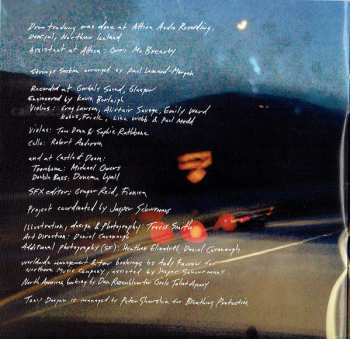 Drum tracking was done at Athica Audio Recording,
Donegal, Northern Ireland
Assistant at Athica: Chris McBrearty
Strings Section arranged by Paul Leonard-Morgan
Recorded at Gorbals Sound, Glasgow
Engineered by Kevin Burleigh
Violins: Greg Lawson, Alistair Savage, Emily Ward
Kobus Frick, Liza Webb & Paul Medd
Violas: Tom Dean & Sophie Rathbone
Cello: Robert Anderson
and at Castle of Doom:
Trombone: Michael Owers
Double Bass: Donema Lyall
SFX editor: Ginger Reid, Fionien
Project coordinated by Jasper Schuurmans
Illustration, design & Photography: Travis Smith
Art Direction: Daniel Cavanagh
Additional photography: Heather Daniel Cavanagh
Worldwide management & tour bookings by Andy Farrow for
Northern Music Company, assisted by Jasper Schuurmans
North America booking by Dan Rozenblum for Circle Talent Agency
is managed by Peter for